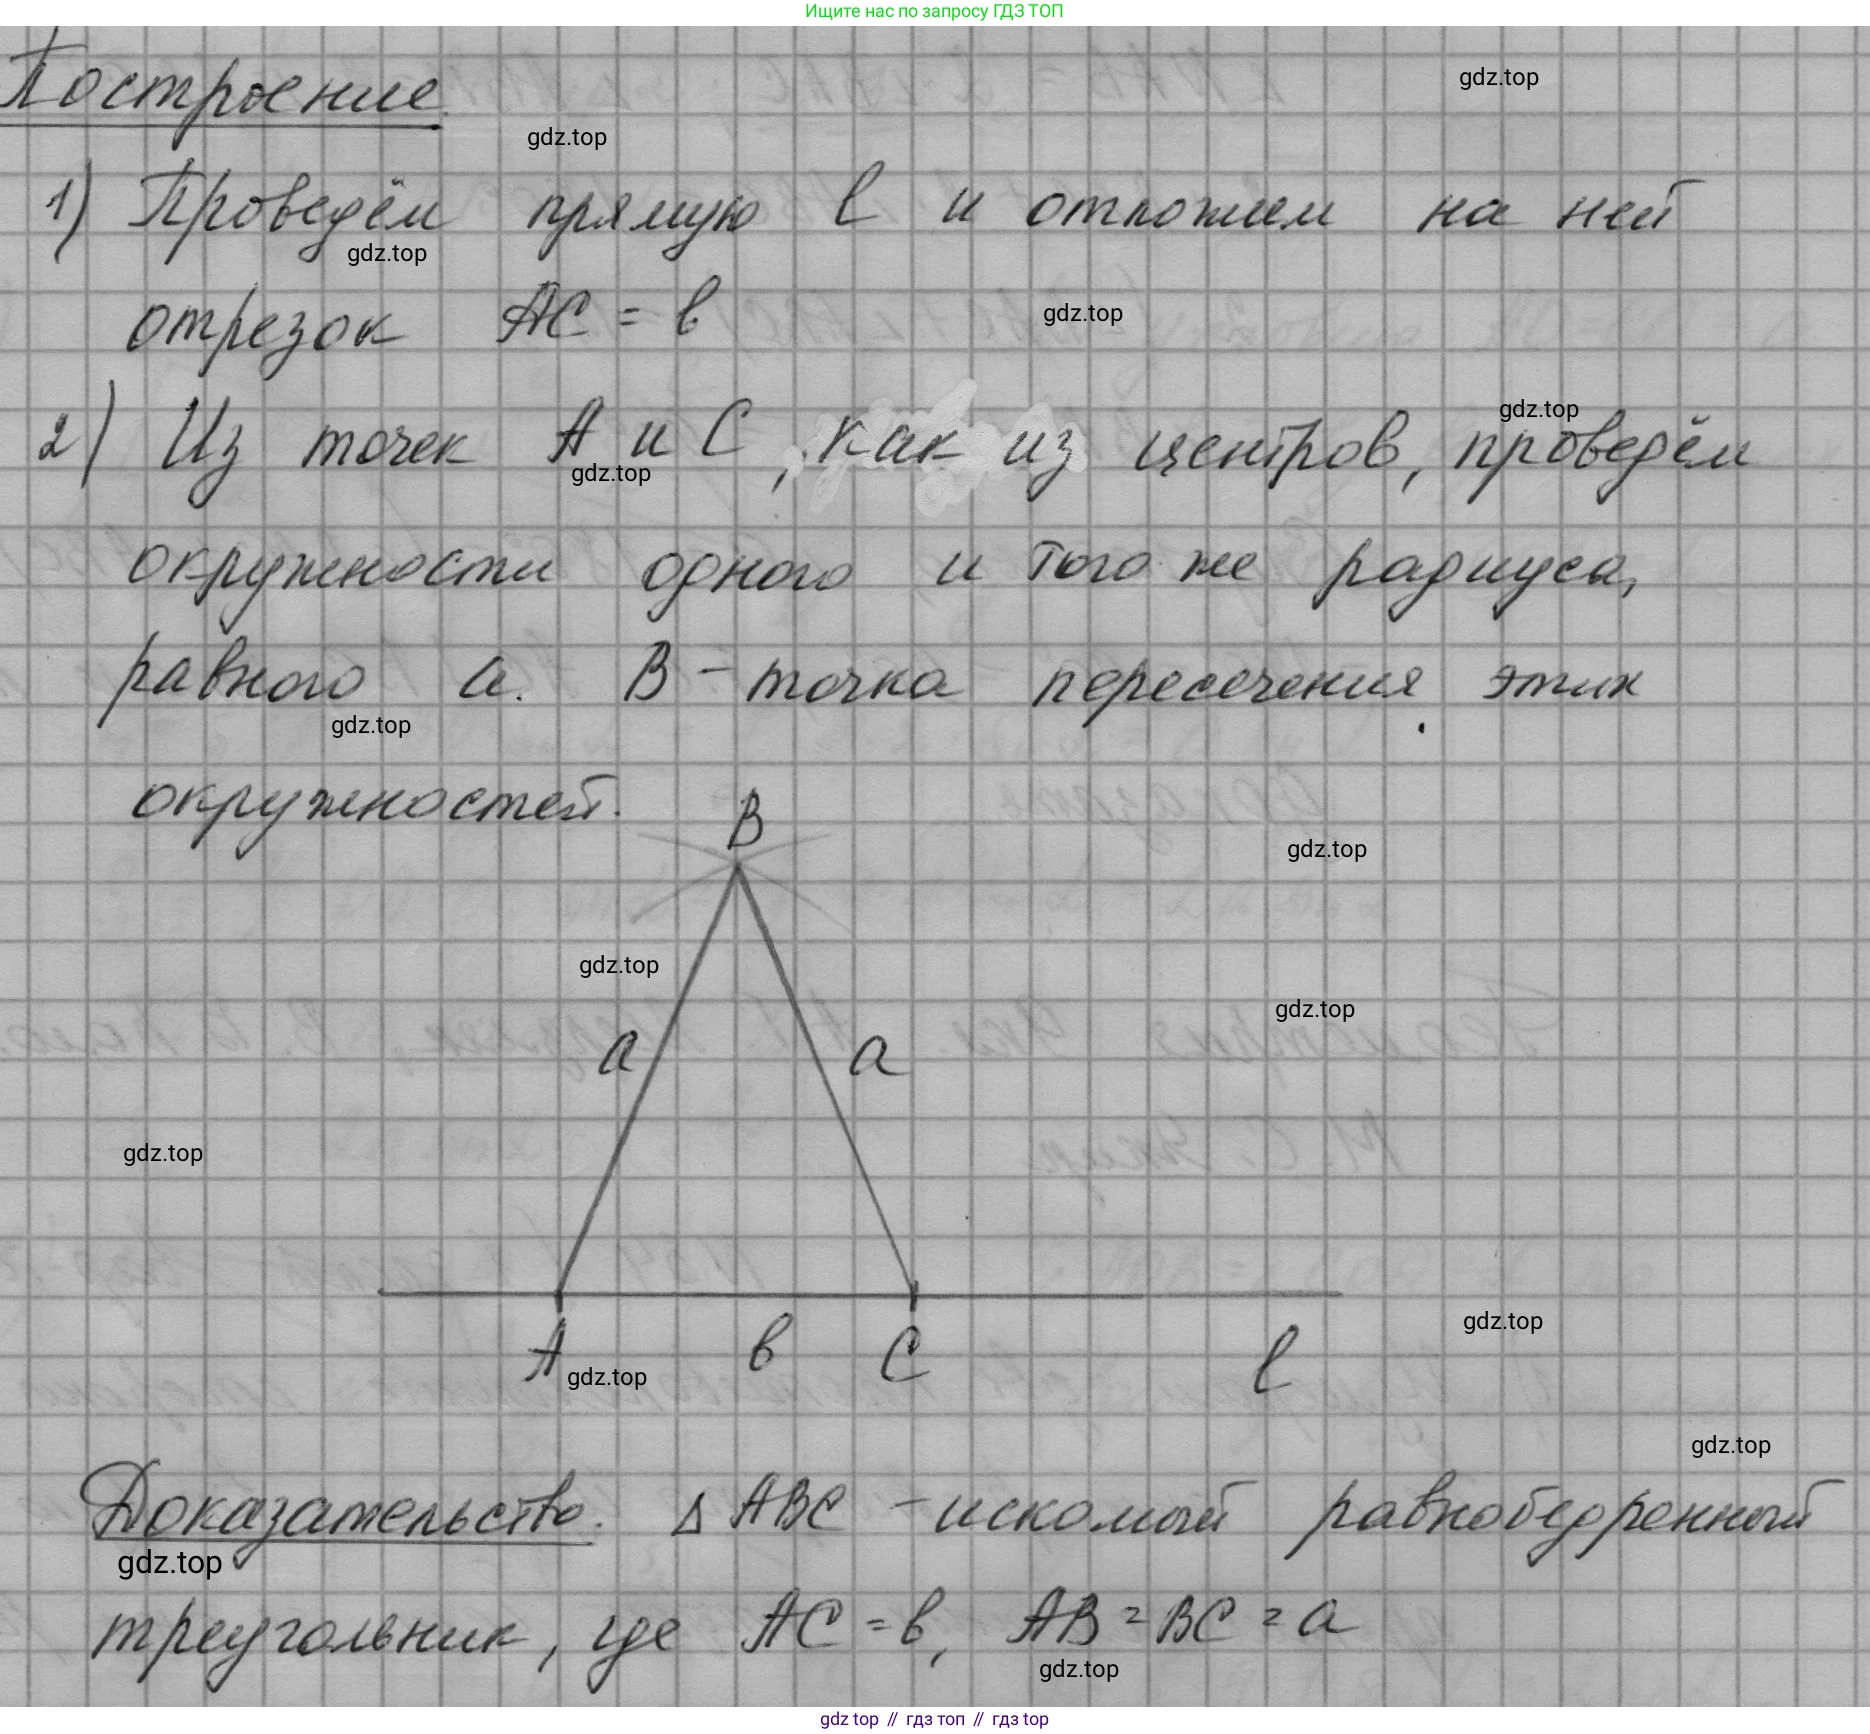 Ищите нас по запросу ГДЗ ТОП
Построение.
gdz.top
gdz.top
1) Проведём прямую l и отложим на ней
gdz.top
отрезок AC = b
gdz.top
gdz.top
2) Из точек A и C, как из центров, проведём
gdz.top
окружности одного и того же радиуса,
равного a. B - точка пересечения этих
gdz.top
окружностей.
B
gdz.top
gdz.top
gdz.top
a a
gdz.top
gdz.top
A b C l
gdz.top
gdz.top
Доказательство. Δ ABC - искомый равнобедренный
gdz.top
треугольник, где AC = b, AB = BC = a
gdz.top
gdz top // гдз топ // гдз top